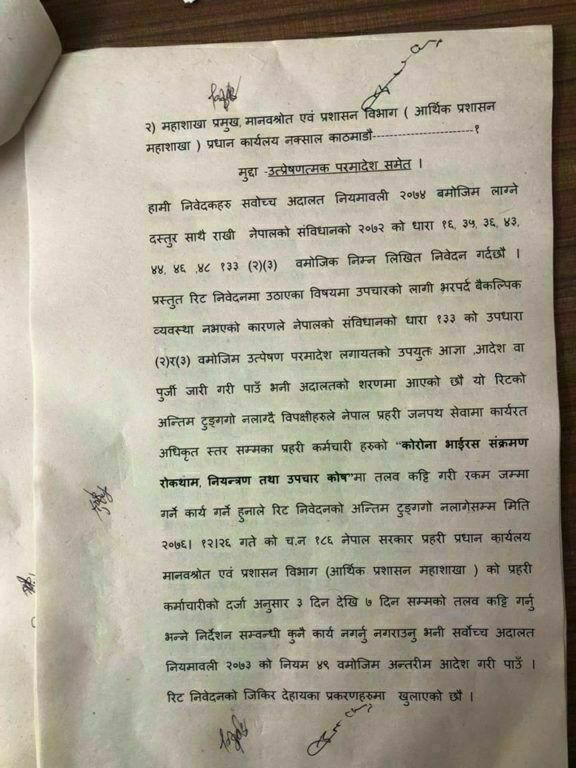 २) महाशाखा प्रमुख, मानवश्रोत एवं प्रशासन विभाग ( आर्थिक प्रशासन
महाशाखा ) प्रधान कार्यलय नक्साल काठमाडौ-------------------------१
मुद्दा -उत्प्रेषणत्मक परमादेश समेत ।
हामी निवेदकहरु सर्वोच्च अदालत नियमावली २०७४ बमोजिम लाग्ने
दस्तुर साथै राखी नेपालको संविधानको २०७२ को धारा १६, ३५, ३६, ४३,
४४, ४६ ,४८ १३३ (२)(३) वमोजिक निम्न लिखित निवेदन गर्दछौ ।
प्रस्तुत रिट निवेदनमा उठाएका विषयमा उपचारको लागी भरपर्द बैकल्पिक
व्यवस्था नभएको कारणले नेपालको संविधानको धारा १३३ को उपधारा
(२)र(३) वमोजिम उत्पेषण परमादेश लगायतको उपयुतः आज्ञा ,आदेश वा
पुर्जी जारी गरी पाउँ भनी अदालतको शरणमा आएको छौ यो रिटको
अन्तिम टुङ्गगो नलाग्दै विपक्षीहरुले नेपाल प्रहरी जनपथ सेवामा कार्यरत
अधिकृत स्तर सम्मका प्रहरी कर्मचारी हरुको "कोरोना भाईरस संक्रमण
रोकथाम, नियन्त्रण तथा उपचार कोष"मा तलव कट्टि गरी रकम जम्मा
गर्ने कार्य गर्ने हुनाले रिट निवेदनको अन्तिम टुङ्गगो नलागेसम्म मिति
२०७६। १२।२६ गते को च.न १८६ नेपाल सरकार प्रहरी प्रधान कार्यलय
मानवश्रोत एवं प्रशासन विभाग (आर्थिक प्रशासन महाशाखा ) को प्रहरी
कर्माचारीको दर्जा अनुसार ३ दिन देखि ७ दिन सम्मको तलव कट्टि गर्नु
भन्ने निर्देशन सम्वन्धी कुनै कार्य नगर्नु नगराउनु भनी सर्वोच्च अदालत
नियमावली २०७३ को नियम ४९ वमोजिम अन्तरीम आदेश गरी पाउँ ।
रिट निवेदनको जिकिर देहायका प्रकरणहरुमा खुलाएको छौ ।